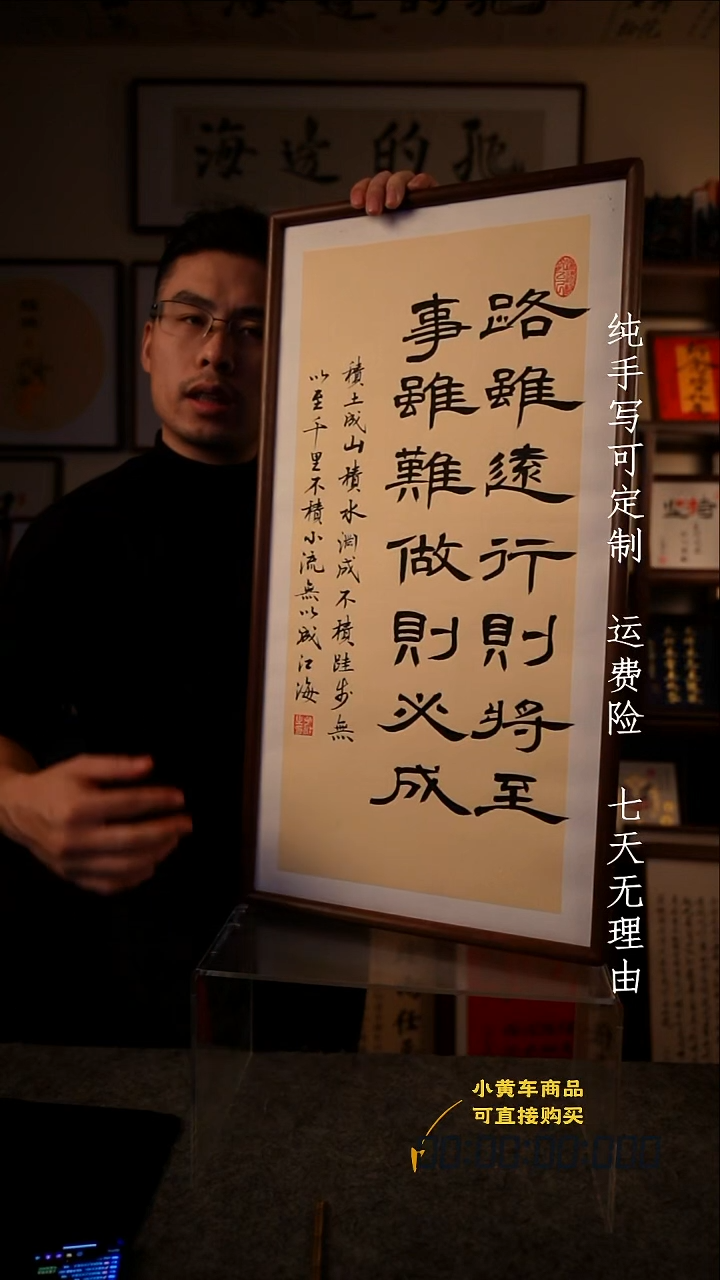 海邊的
路雖遠行則將至
事雖難做則必成
積土成山積水淵成不積跬步無
以至千里不積小流無以成江海
纯手写可定制 运费险 七天无理由
小黄车商品
可直接购买